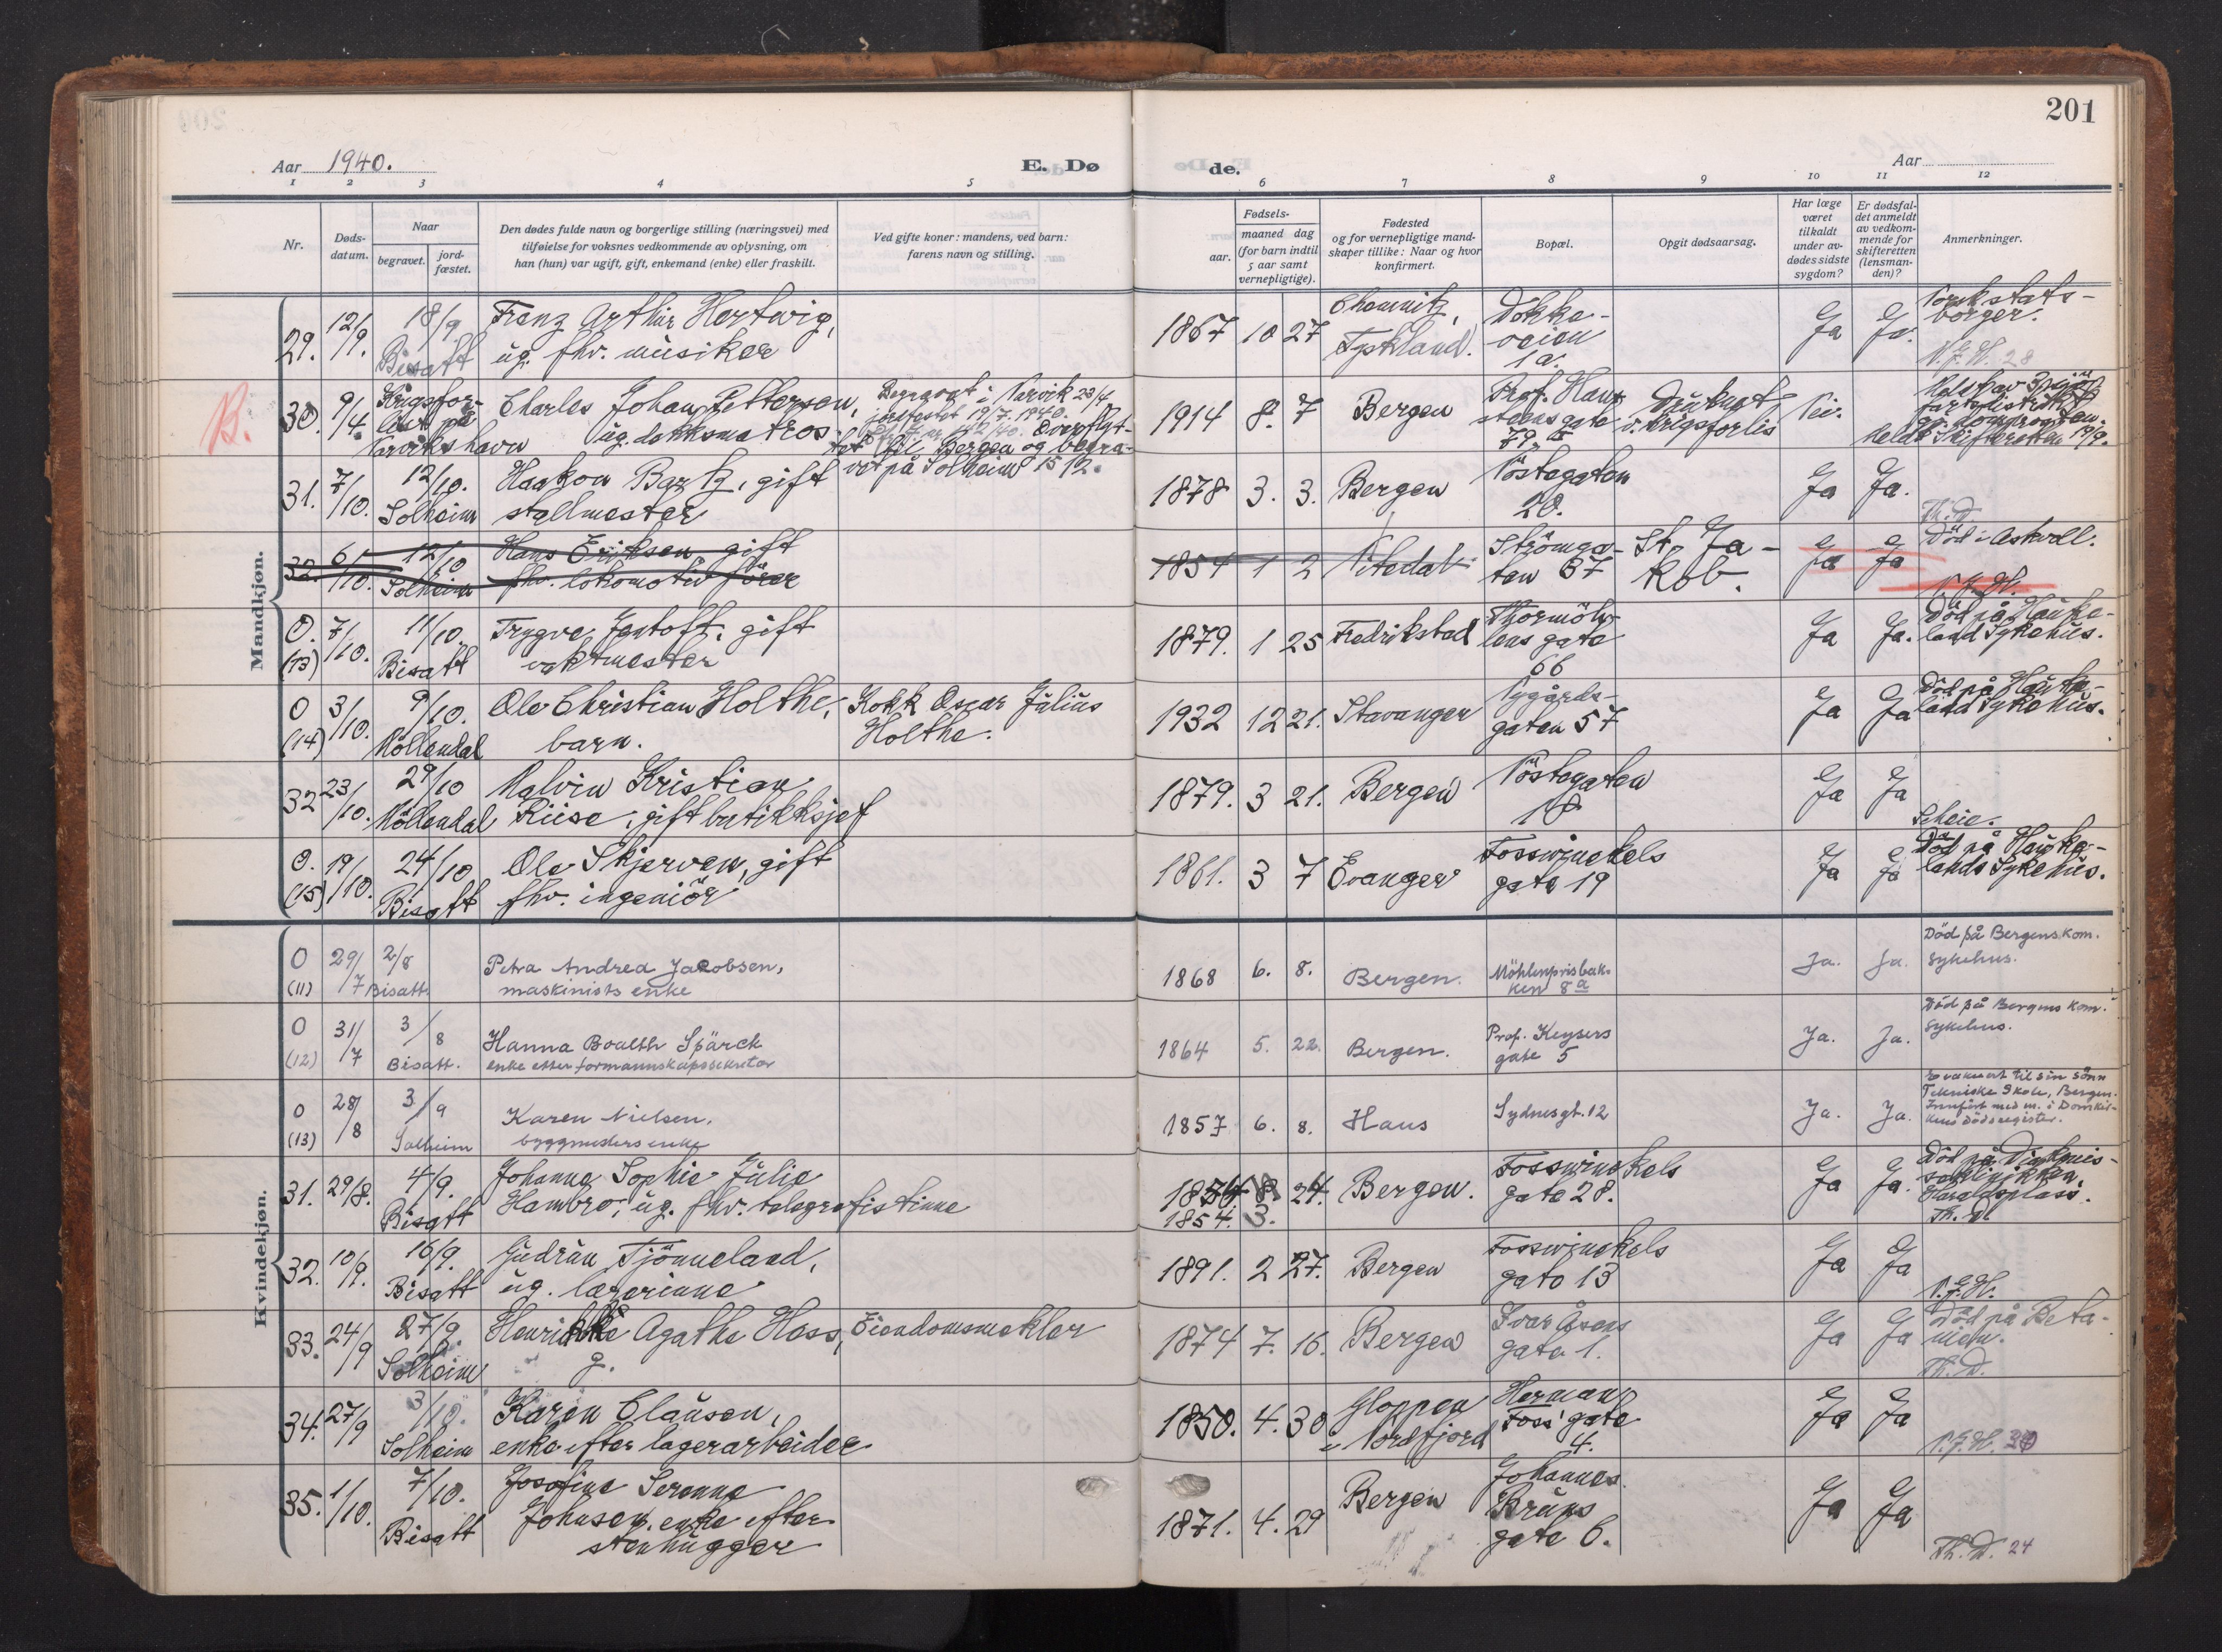 201
Aar 1940.
E. Dø
de.
Aar
1 2 3 4 5 6 7 8 9 10 11 12
Nr.
Døds-
datum.
Naar
begravet.
jord-
fæstet.
Den dødes fulde navn og borgerlige stilling (næringsvei) med
tilføielse for voksnes vedkommende av oplysning, om
han (hun) var ugift, gift, enkemand (enke) eller fraskilt.
Ved gifte koner: mandens, ved barn:
farens navn og stilling.
Fødsels-
aar.
maaned dag
(for barn indtil
5 aar samt
vernepligtige).
Fødested
og for vernepligtige mand-
skaper tillike: Naar og hvor
konfirmert.
Bopæl.
Opgit dødsaarsag.
Har læge
været
tilkaldt
under av-
dødes sidste
sygdom?
Er dødsfal-
det anmeldt
av vedkom-
mende for
skifteretten
(lensman-
den)?
Anmerkninger.
Mandkjøn.
29. 12/9. 18/9 Bisatt
Franz Arthur Hertwig,
ug. fhv. musiker
1867 10 27
Chemnitz,
Tyskland.
Dokke-
veien
1a.
Ja Ja.
Norsk stats-
borger.
N.J.H. 28
B.
30. 9/4. Krigsfor-
list på
Narvikshavn
Charles Johan Pettersen,
ug. dekksmatros
Begravet i Narvik 23/4
jordfestet 19/7. 1940.
Overflyt-
tet til Bergen og begra-
vet på Solheim 15/12.
1914 8. 7 Bergen
Prof. Hans-
steens gate
79
Druknet
v. krigsforlis
Nei.
Meldt Skifteretten 19/9.
31. 7/10. 12/10. Solheim
Haakon Bartz, gift
stallmester
1878 3. 3. Bergen
Nöstegaten
20.
Ja Ja.
Th. D.
32. 6/10. 12/10 Solheim
Hans Eriksen gift
fhv. lokomotivförer
1854 1 2 Nitedal
Strömga-
ten 67
St. Ja-
kob.
Ja Ja
Död i Askvoll.
N.J.H.
O. (13) 7/10. 11/10. Bisatt
Trygve Jentoft, gift
vaktmester
1879. 1 25 Fredrikstad
Thormöh-
lens gate
66
Ja Ja.
Död på Hauke-
land Sykehus.
O (14) 3/10. 9/10. Möllendal
Ole Christian Holthe,
barn.
Kokk Oscar Julius
Holthe.
1932 12 21. Stavanger
Nygårds-
gaten 57
Ja Ja
Död på Hauke-
land Sykehus.
32 23/10. 29/10 Möllendal
Malvin Kristian
Riise, gift butikksjef
1879. 3 21. Bergen
Nöstegaten
18
Ja Ja
Scheie.
O. (15) 19/10. 24/10 Bisatt
Ole Skjerven, gift
fhv. ingeniör
1861. 3 7 Evanger
Fosswinckels
gate 19
Ja Ja
Död på Hauke-
lands Sykehus.
Kvindekjøn.
O (11) 29/7 2/8 Bisatt.
Petra Andrea Jacobsen,
maskinists enke
1868 6. 8. Bergen.
Möhlenprisbak-
ken 8a
Ja. Ja.
Död på Bergens kom.
sykehus.
O (12) 31/7 3/8 Bisatt.
Hanna Boalth Spärck
enke etter formannskapssekretær
1864 5. 22. Bergen.
Prof. Keysers
gate 5
Ja. Ja.
Död på Bergens kom.
sykehus.
O (13) 28/8 3/9 Solheim
Karen Nielsen.
byggmesters enke
1857 6. 8. Haus
Sydnesgt. 12
Ja. Ja.
Evakuert til sin sönn
Tekniske Skole, Bergen.
Innfört med nr. i Domkir-
kens dödsregister.
31. 29/8. 4/9. Bisatt
Johanne Sophie Julie
Hambro, ug. fhv. telegrafistinne
8. 24. Bergen.
1854. 3.
Fosswinckels
gate 28.
Ja Ja.
Död på Diakonis-
seklinikken,
Haraldsplass.
Th. D.
32. 10/9. 16/9. Bisatt
Gudrun Tjönneland,
ug. lærerinne
1891. 2 27. Bergen
Fosswinckels
gate 13
Ja Ja
N.J.H.
33. 24/9 27/9. Solheim
Henrikke Agathe Hess,
g.
Eiendomsmekler
1874 7. 16. Bergen
Ivar Åsens
gate 1.
Ja Ja
Död på Beta-
nien.
Th. D.
34. 27/9 3/10. Solheim
Karen Clausen,
enke efter lagerarbeider
1850. 4. 30
Gloppen
i Nordfjord
Herman
Foss' gate
4.
Ja Ja
N.J.H. 30
35. 1/10. 7/10. Bisatt
Josefine Serenne
Johnsen, enke efter
stenhugger
1871. 4. 29 Bergen
Johannes
Bruns
gate 6.
Ja Ja
Th. D. 24